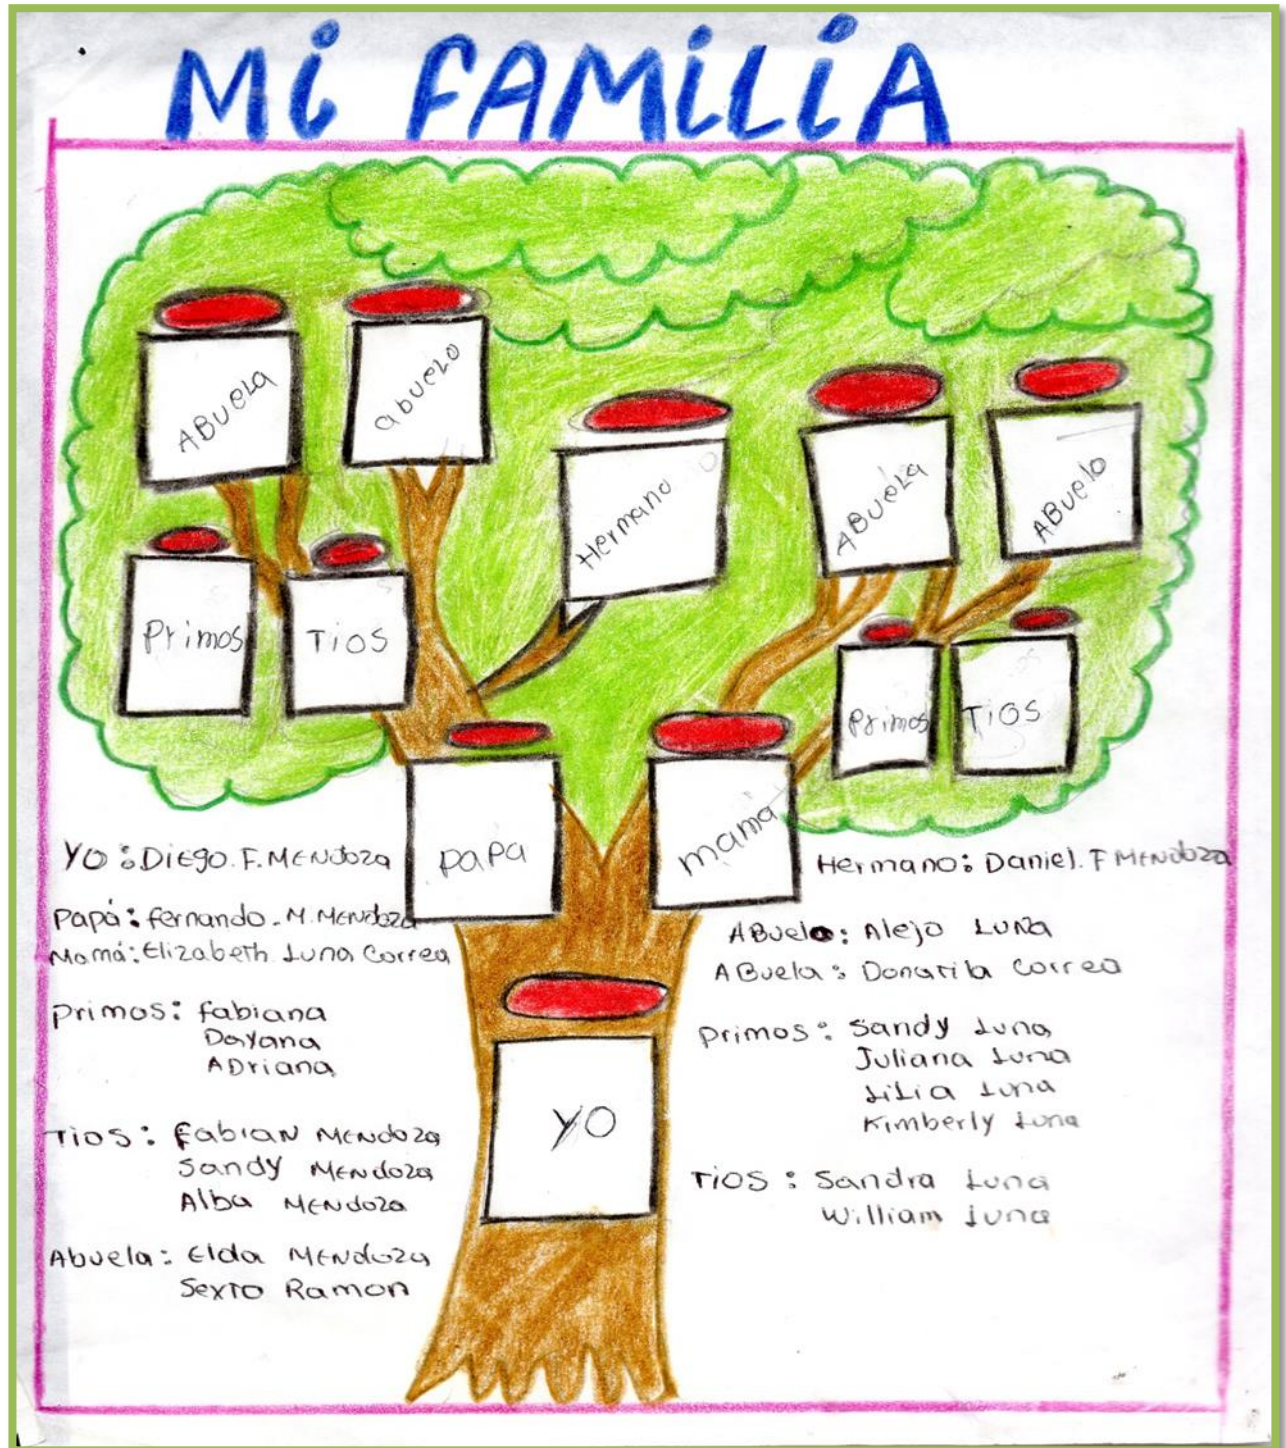 Mi FAMiLiA
ABuela
abuelo
Hermano
ABuela
ABuelo
Primos
Tios
Primos
Tios
papa
mama
YO
YO: DiEgo. F. MENdoza
Papá: fernando. M. MENdoza
Mamá: Elizabeth Luna Correa
primos: fabiana
Dayana
ADriana
Tios: fabiaN MENdoza
Sandy MENdoza
Alba MENdoza
Abuela: Elda MENdoza
Sexto Ramon
Hermano: Daniel. F MENdoza
ABuelo: Alejo Luna
ABuela: Donatila Correa
primos: Sandy Luna
Juliana Luna
Lilia Luna
Kimberly Luna
Tios: Sandra Luna
William Luna